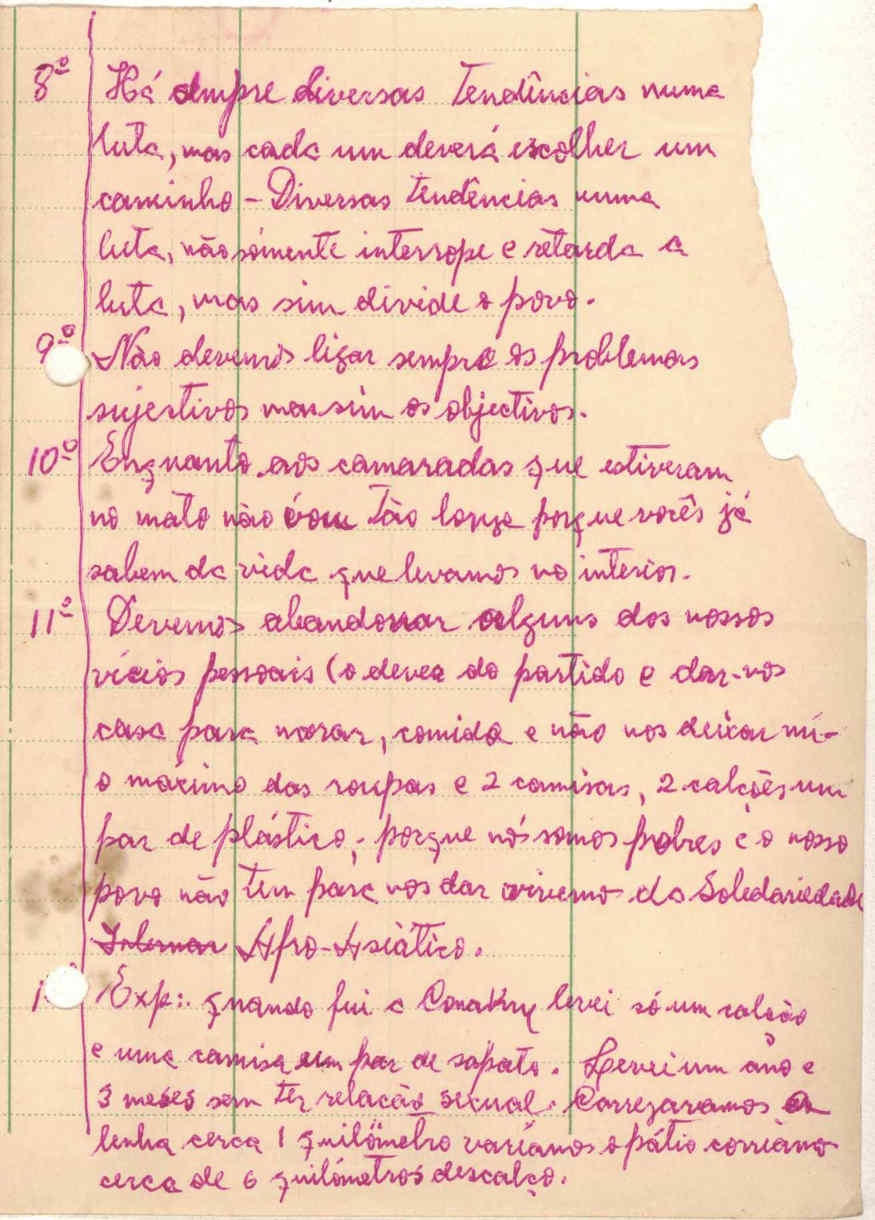 8º Há sempre diversas tendências numa
luta, mas cada um deverá escolher um
caminho - Diversas tendências numa
luta, não sómente interrope e retarda a
luta, mas sim divide o povo.
9º Não devemos ligar sempre os problemas
sujestivos mas sim os objectivos.
10º Enquanto aos camaradas que estiveram
no mato não vou tão longe porque vocês já
sabem da vida que levamos no interior.
11º Devemos abandonar alguns dos nossos
vícios pessoais (o dever do partido e dar-nos
casa para morar, comida e não nos deixar nú-
o máximo das roupas e 2 camisas, 2 calções um
par de plástico; porque nós somos pobres e o nosso
povo não tem para nos dar vivemo da Soledariedade
Afro-Asiático.
1 Exp: quando fui a Conakry levei só um calção
e uma camisa um par de sapato. Levei um ano e
3 meses sem ter relação sexual. Carregaramos a
lenha cerca 1 quilómetro varíamos o pátio corriamo
cerca de 6 quilómetros descalço.